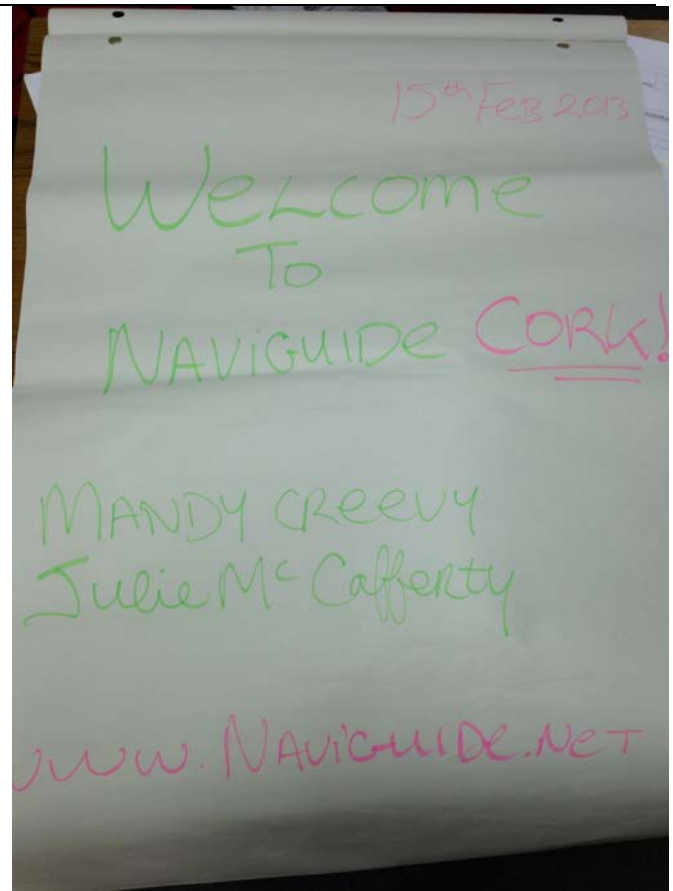 15th Feb 2013
Welcome
To
NAViGUIDe CORK!
MANDY CReevy
Julie Mc Cafferty
www.NAViGUIDe.NeT